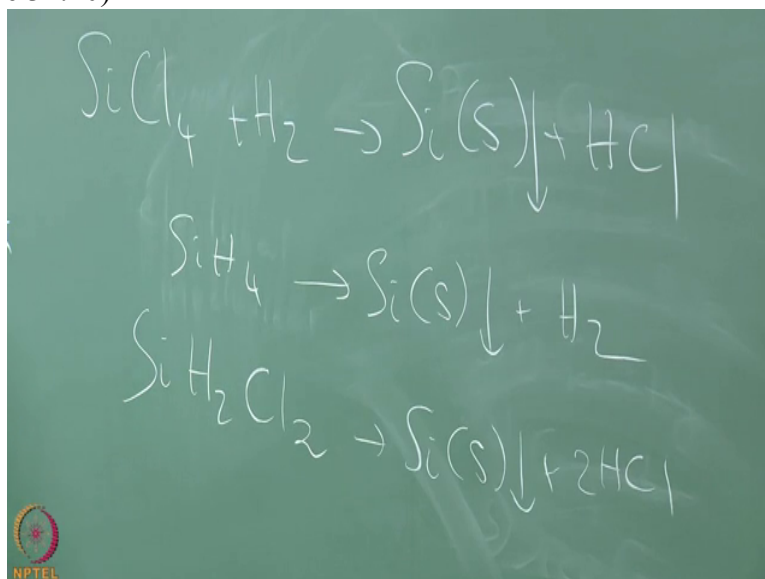 SiCl₄ + H₂ → Si(s)↓ + HCl
SiH₄ → Si(s)↓ + H₂
SiH₂Cl₂ → Si(s)↓ + 2HCl
NPTEL